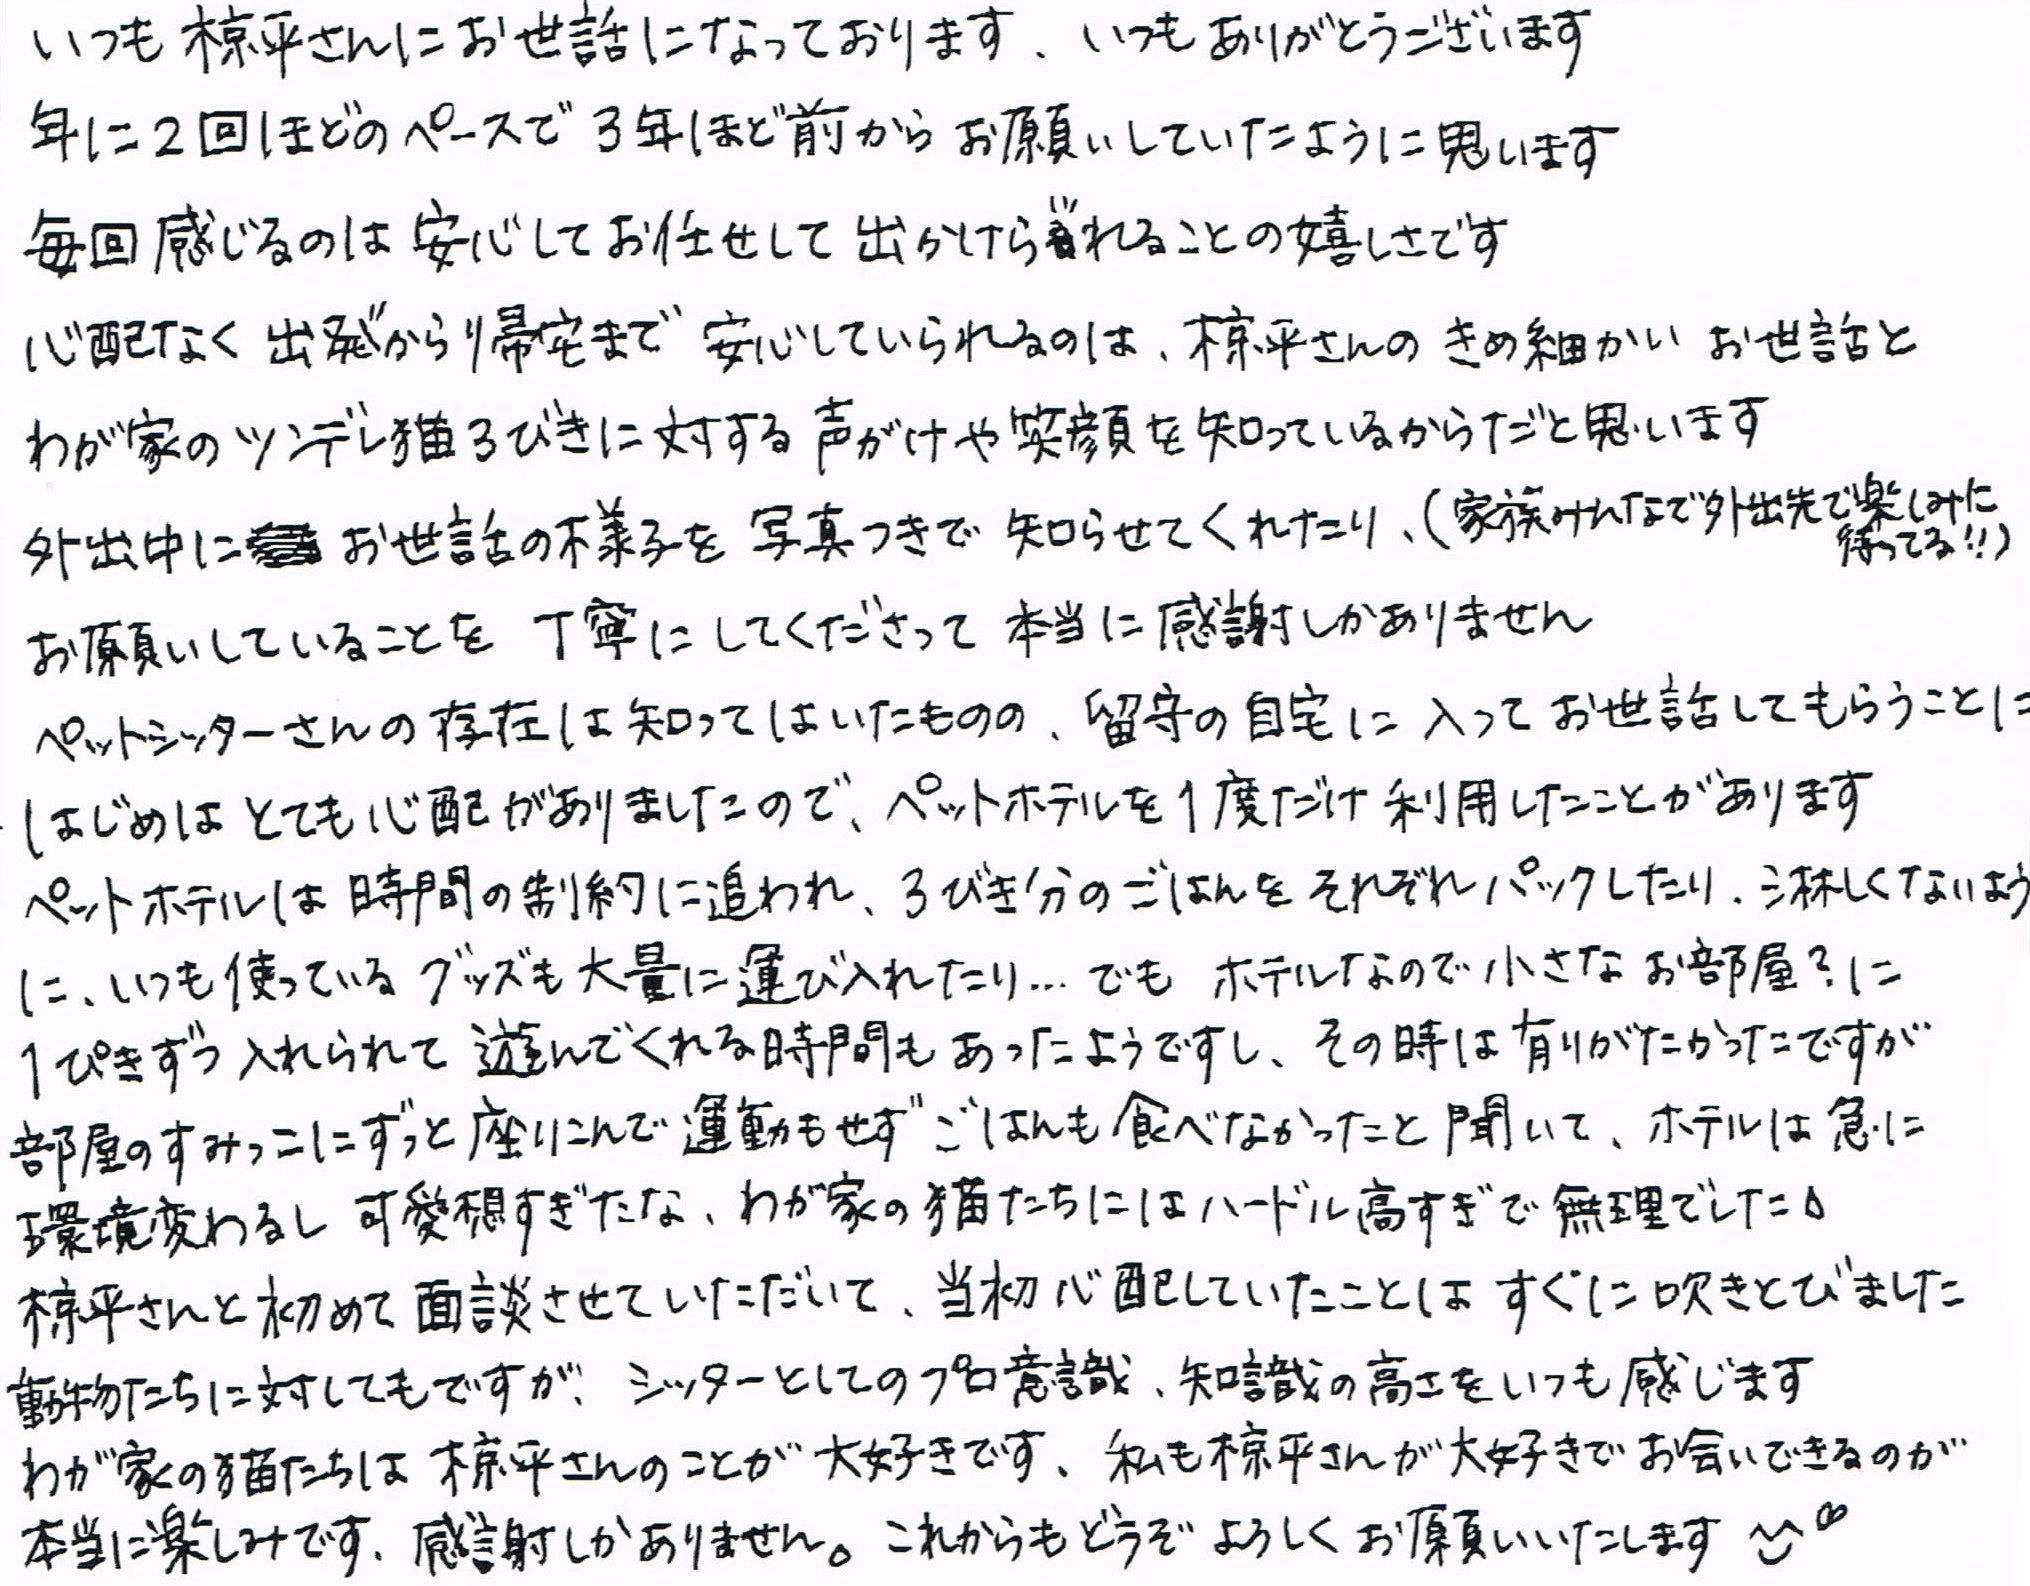 いつも椋平さんにお世話になっております、いつもありがとうございます
年に2回ほどのペースで3年ほど前からお願いしていたように思います
毎回感じるのは安心してお任せして出かけられることの嬉しさです
心配なく出発から帰宅まで安心していられるのは、椋平さんのきめ細かいお世話と
わが家のツンデレ猫3びきに対する声がけや笑顔を知っているからだと思います
外出中にお世話の様子を写真つきで知らせてくれたり、(家族みんなで外出先で楽しみに
待ってる!!)
お願いしていることを丁寧にしてくださって本当に感謝しかありません
ペットシッターさんの存在は知ってはいたものの、留守の自宅に入ってお世話してもらうことに
はじめはとても心配がありましたので、ペットホテルを1度だけ利用したことがあります
ペットホテルは時間の制約に追われ、3びき分のごはんをそれぞれパックしたり、淋しくないよう
に、いつも使っているグッズも大量に運び入れたり…でもホテルなので小さなお部屋?に
1ぴきずつ入れられて遊んでくれる時間もあったようですし、その時は有りがたかったですが
部屋のすみっこにずっと座りこんで運動もせずごはんも食べなかったと聞いて、ホテルは急に
環境変わるし可愛想すぎたな、わが家の猫たちにはハードル高すぎで無理でした
椋平さんと初めて面談させていただいて、当初心配していたことはすぐに吹きとびました
動物たちに対してもですが、シッターとしてのプロ意識、知識の高さをいつも感じます
わが家の猫たちは椋平さんのことが大好きです、私も椋平さんが大好きでお会いできるのが
本当に楽しみです、感謝しかありません。これからもどうぞよろしくお願いいたします